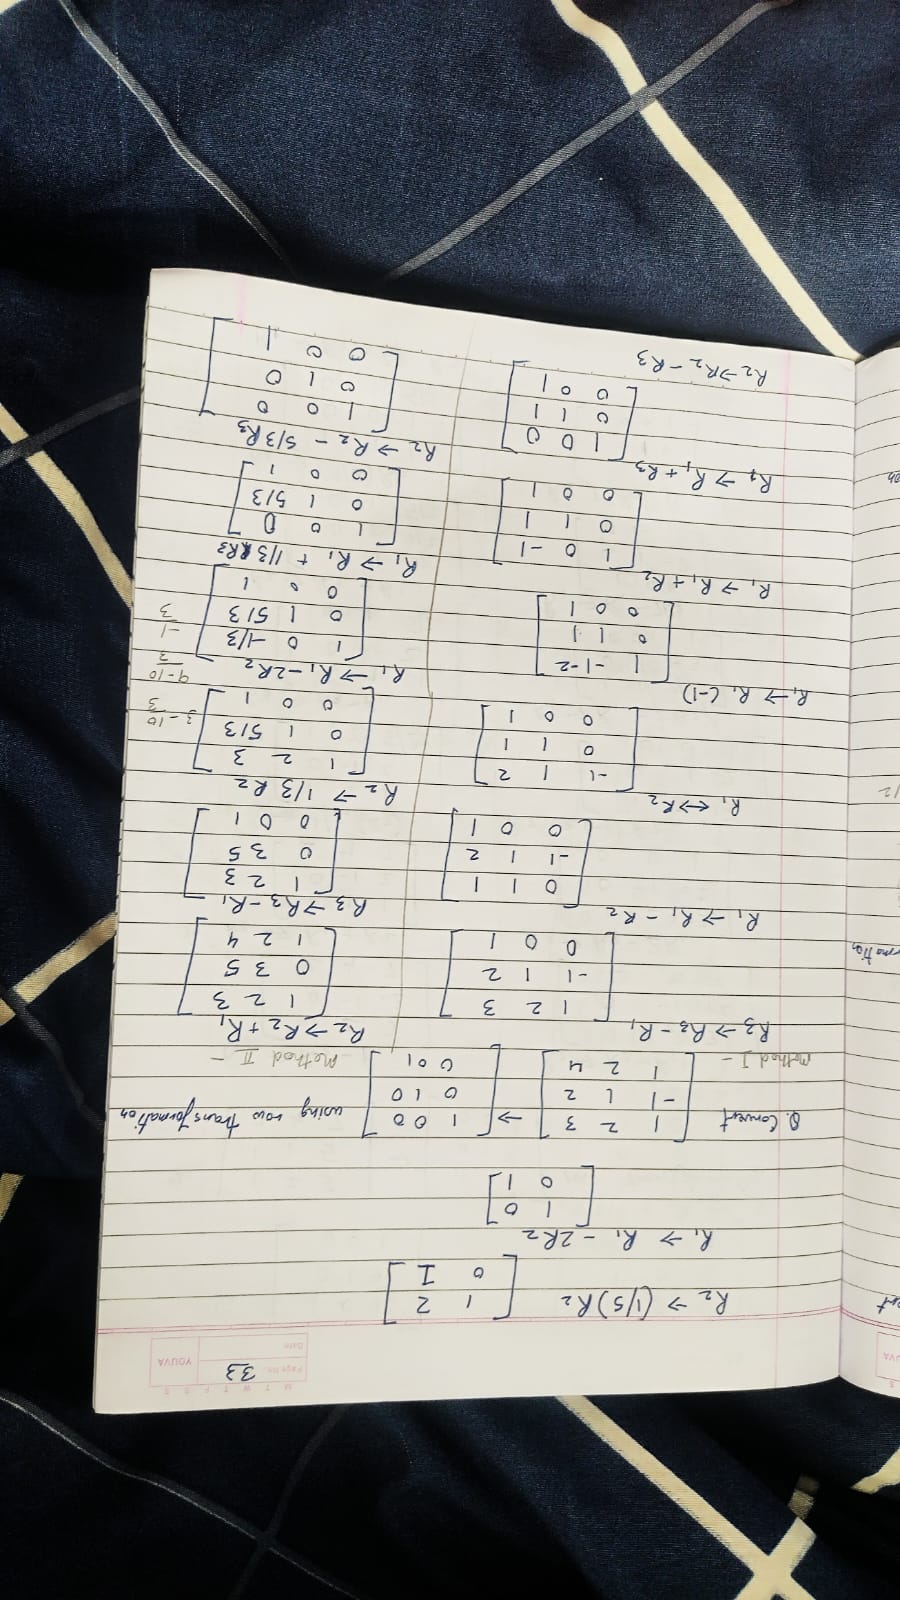 M T W T F S S
Page No.: 33
YOUVA
Date:
R2 → (1/5) R2 [1 2
0 1]
R1 → R1 - 2R2
[1 0
0 1]
Q. Convert [1 2 3 → [1 0 0 using row transformation
-1 1 2 0 1 0
1 2 4] 0 0 1]
Method I -
R3 → R3 - R1
[1 2 3
-1 1 2
0 0 1]
R1 → R1 - R2
[0 1 1
-1 1 2
0 0 1]
R1 ↔ R2
[-1 1 2
0 1 1
0 0 1]
R1 → R1 (-1)
[1 -1 -2
0 1 1
0 0 1]
R1 → R1 + R2
[1 0 -1
0 1 1
0 0 1]
R1 → R1 + R3
[1 0 0
0 1 1
0 0 1]
R2 → R2 - R3
Method II -
R2 → R2 + R1
[1 2 3
0 3 5
1 2 4]
R3 → R3 - R1
[1 2 3
0 3 5
0 0 1]
R2 → 1/3 R2
[1 2 3
0 1 5/3
0 0 1]
3 - 10/3
R1 → R1 - 2R2
9 - 10/3
[1 0 -1/3
0 1 5/3
0 0 1]
-1/3
R1 → R1 + 1/3 R3
[1 0 0
0 1 5/3
0 0 1]
R2 → R2 - 5/3 R3
[1 0 0
0 1 0
0 0 1]